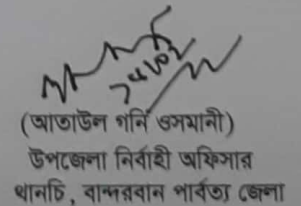 (আতাউল গনি ওসমানী)
উপজেলা নির্বাহী অফিসার
থানচি, বান্দরবান পার্বত্য জেলা